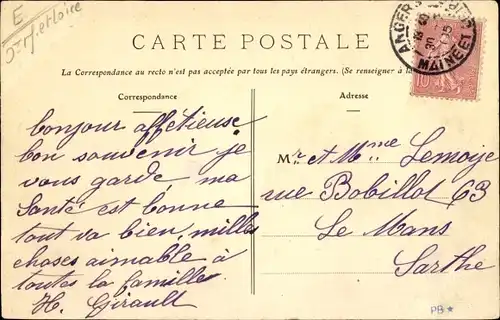 E
Met Loire
CARTE POSTALE
La Correspondance au recto n'est pas acceptée par tous les pays étrangers. (Se renseigner à la
Correspondance
Adresse
bonjour affétieuse
bon souvenir je
vous garde ma
Santé est bonne
tout va bien, milles
choses aimable à
toutes la familles
H. Girault
Mr et Mme Lemoije
rue Bobillot 63
Le Mans
Sarthe
ANGERS
MAINE ET
30
10
PB★